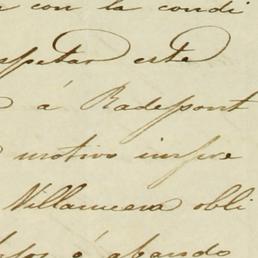 con la condi
spetar este
á Radepont
motivo impre
Villanueva obli
á abando